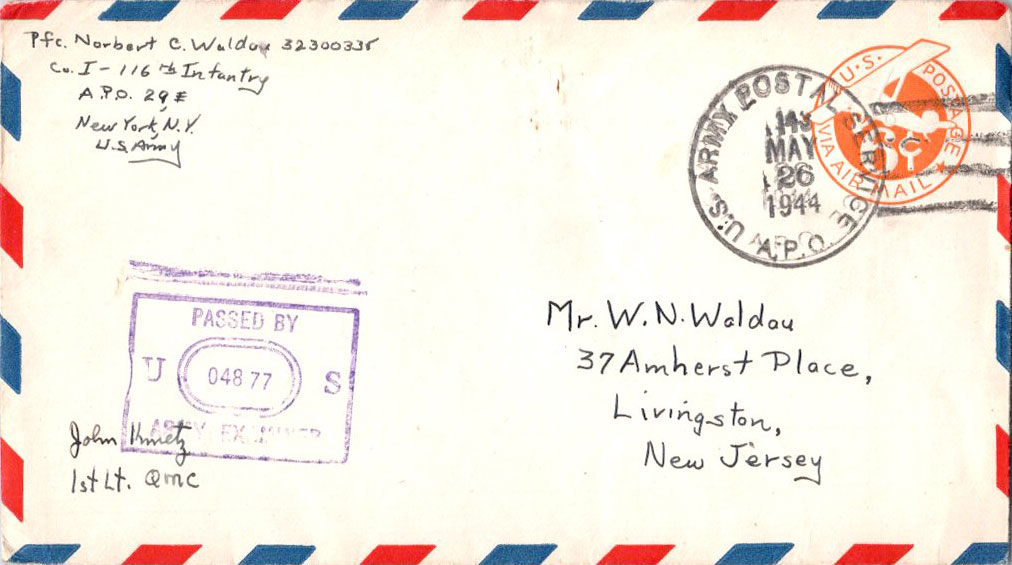 Pfc. Norbert C. Waldau 32300335
Co. I - 116th Infantry
A.P.O. 29
New York, N.Y.
U.S. Army
U.S. ARMY POSTAL SERVICE
143
MAY
26
1944
A.P.O.
U.S. POSTAGE
6¢
VIA AIR MAIL
PASSED BY
U 04877 S
ARMY EXAMINER
John Kmetz
1st Lt. QMC
Mr. W. N. Waldau
37 Amherst Place,
Livingston,
New Jersey